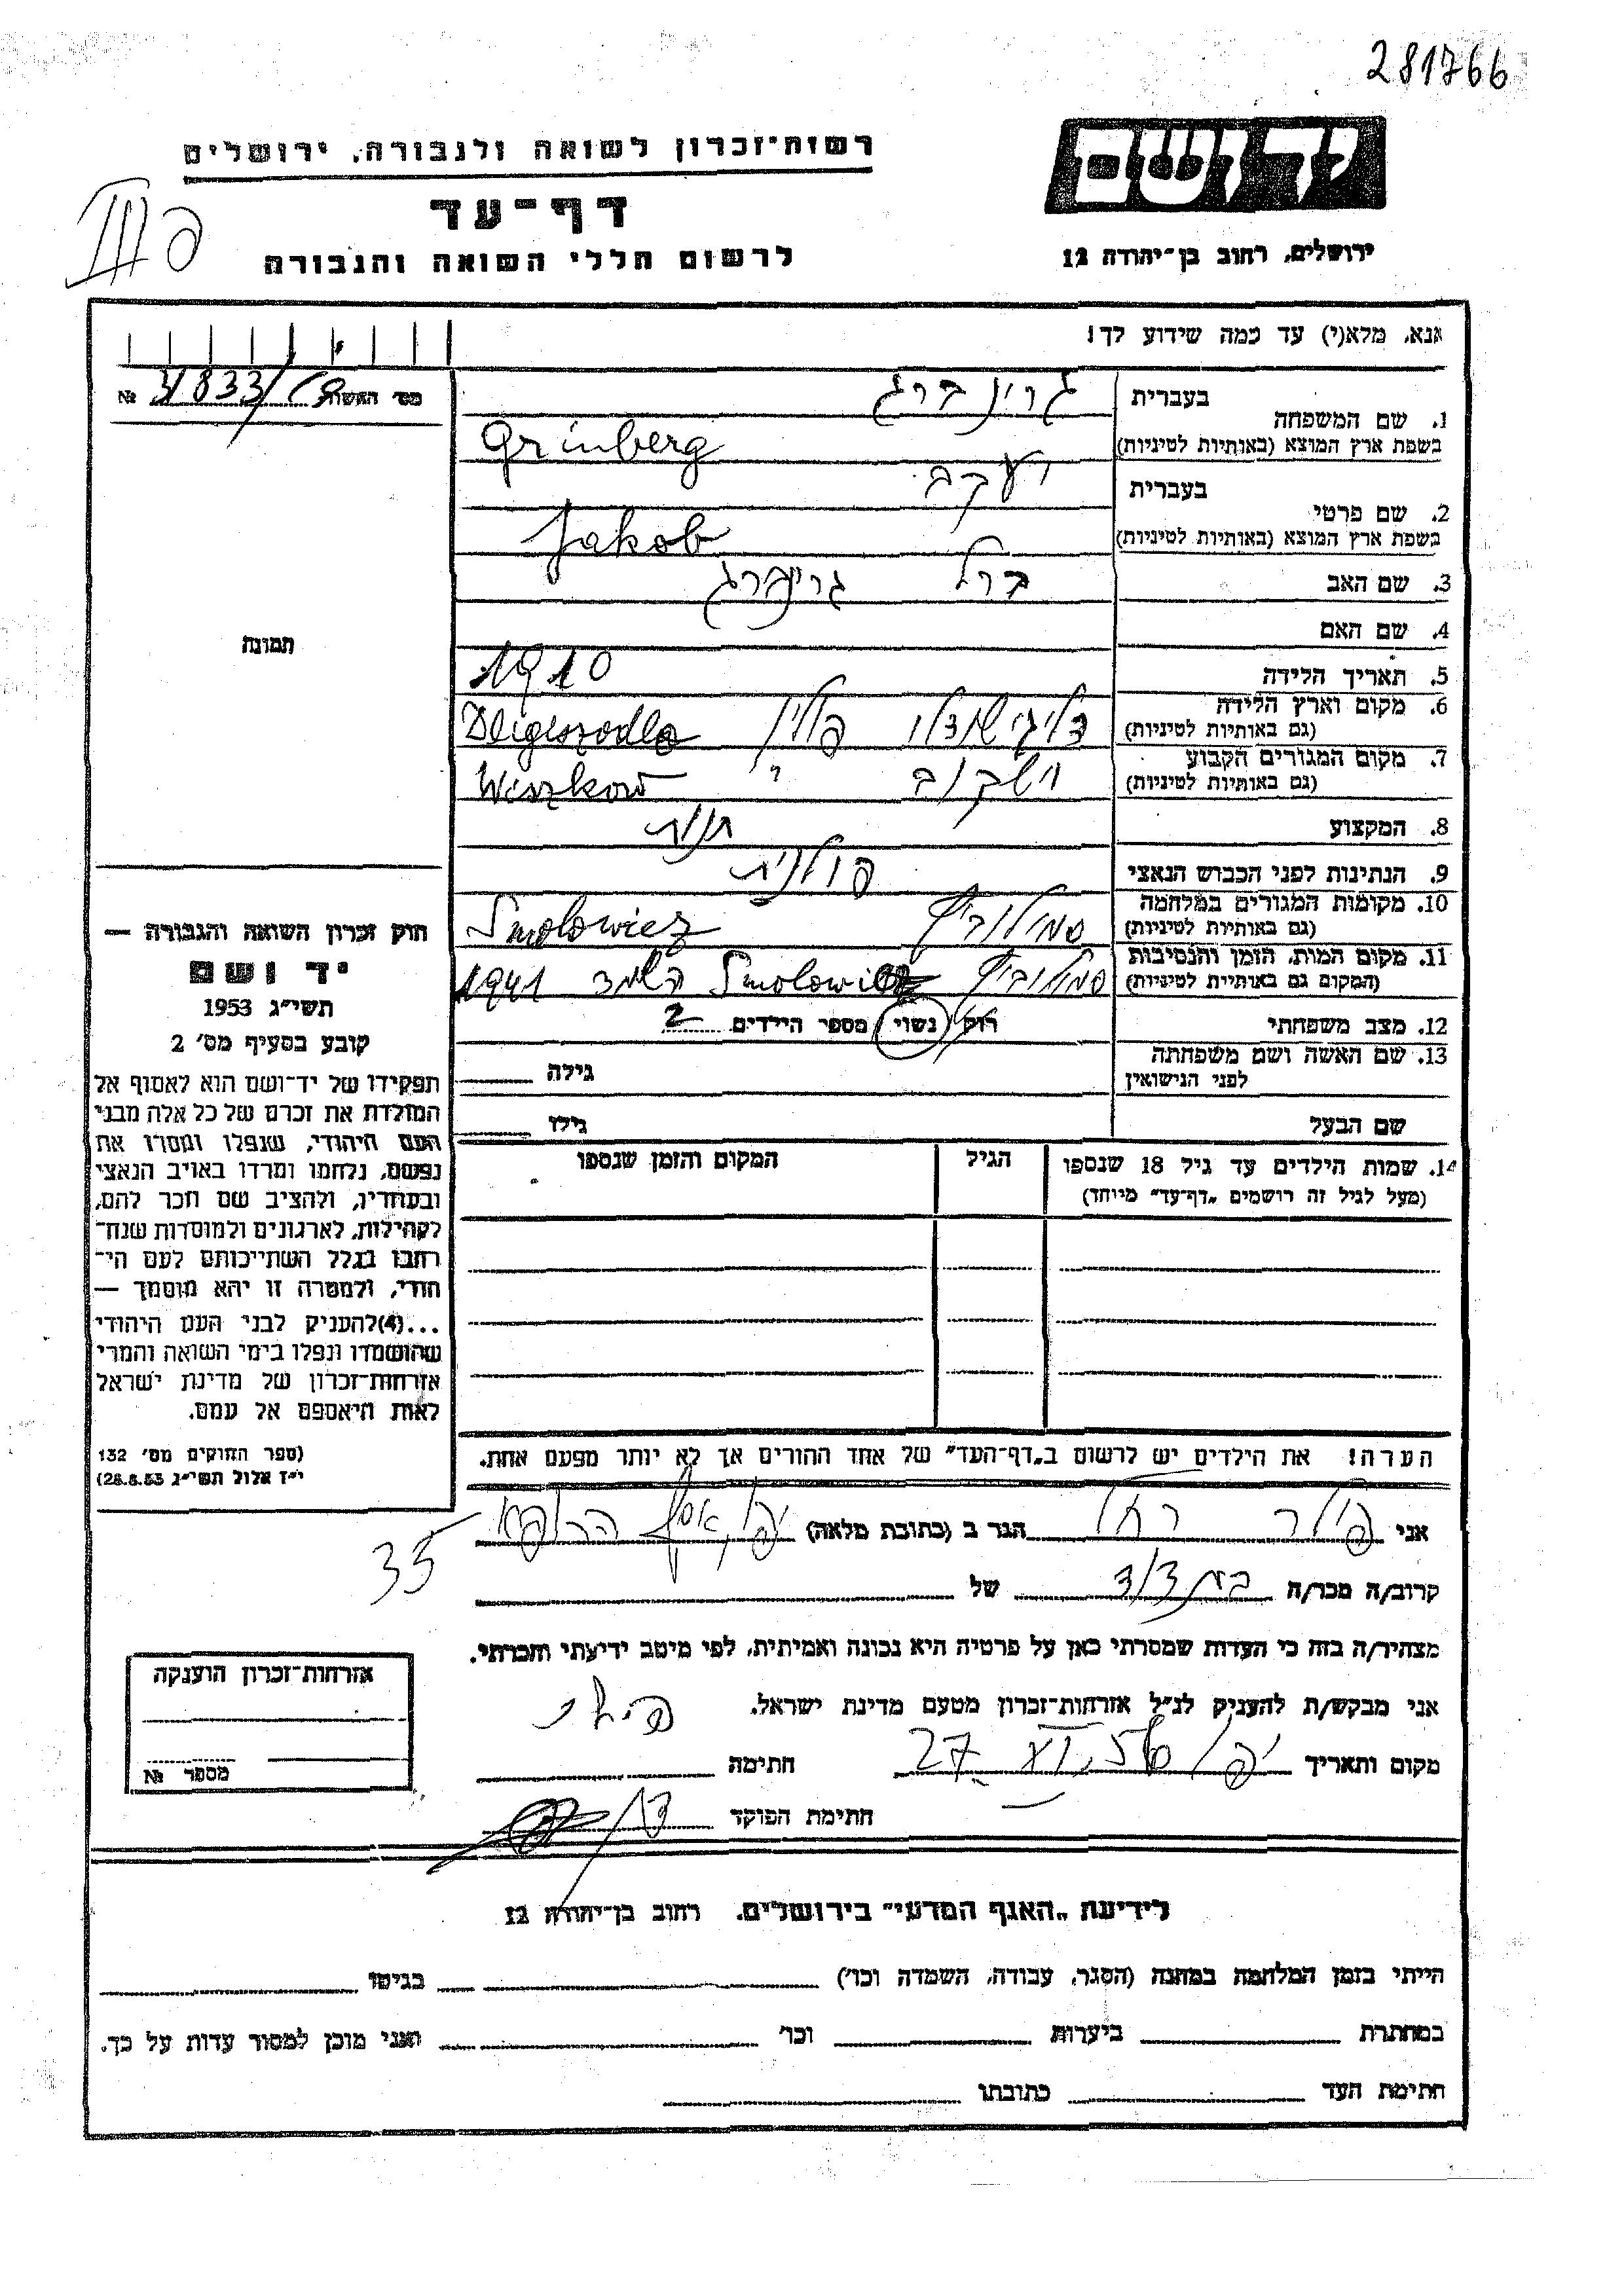 281766
יד ושם
רשות־זכרון לשואה ולגבורה, ירושלים
דף־עד
לרשום חללי השואה והגבורה
ירושלים, רחוב בן־יהודה 12
אנא, מלא(י) עד כמה שידוע לך!
מס׳ האשה № 31833/
1. שם המשפחה בעברית גרינברג
בשפת ארץ המוצא (באותיות לטיניות) Grinberg
2. שם פרטי בעברית יעקב
בשפת ארץ המוצא (באותיות לטיניות) Jakob
3. שם האב ברל גרינברג
4. שם האם
תמונה
5. תאריך הלידה 1910
6. מקום וארץ הלידה
(גם באותיות לטיניות) פולין
7. מקום המגורים הקבוע
(גם באותיות לטיניות) וישקוב " Wiszkow
8. המקצוע
9. הנתינות לפני הכבוש הנאצי פולנית
10. מקומות המגורים במלחמה
(גם באותיות לטיניות) סמולוביץ Smolowicz
11. מקום המות, הזמן והנסיבות
(המקום גם באותיית לטיניות) סמולוביץ Smolowicz 1941
12. מצב משפחתי רווק נשוי מספר הילדים 2
13. שם האשה ושם משפחתה
לפני הנישואין גילה
שם הבעל גילו
14. שמות הילדים עד גיל 18 שנספו הגיל המקום והזמן שנספו
(מעל לגיל זה רושמים „דף־עד" מיוחד)
חוק זכרון השואה והגבורה —
יד ושם
תשי״ג 1953
קובע בסעיף מס׳ 2
תפקידו של יד־ושם הוא לאסוף אל
המולדת את זכרם של כל אלה מבני
העם היהודי, שנפלו ומסרו את
נפשם, נלחמו ומרדו באויב הנאצי
ובעוזריו, ולהציב שם וזכר להם,
לקהילות, לארגונים ולמוסדות שנח־
רבו בגלל השתייכותם לעם הי־
הודי, ולמטרה זו יהא מוסמך —
...(4) להעניק לבני העם היהודי
שהושמדו ונפלו בימי השואה והמרי
אזרחות־זכרון של מדינת ישראל
לאות היאספם אל עמם.
(ספר החוקים מס׳ 132
י״ז אלול תשי״ג 28.8.53)
הערה! את הילדים יש לרשום ב„דף־העד" של אחד ההורים אך לא יותר מפעם אחת.
אני רחל הגר ב (כתובת מלאה) יפו
35
קרוב/ה מכר/ה בת דוד של
מצהיר/ה בזה כי העדות שמסרתי כאן על פרטיה היא נכונה ואמיתית, לפי מיטב ידיעתי והכרתי.
אני מבקש/ת להעניק לנ״ל אזרחות־זכרון מטעם מדינת ישראל.
מקום ותאריך יפו 27. חתימה
חתימת הפוקד
אזרחות־זכרון הוענקה
מספר №
לידיעת „האגף המדעי" בירושלים, רחוב בן־יהודה 12
הייתי בזמן המלחמה במחנה (הסגר, עבודה, השמדה וכו׳) בגיטו
במחתרת ביערות וכו׳ ואני מוכן למסור עדות על כך.
חתימת העד כתובתו